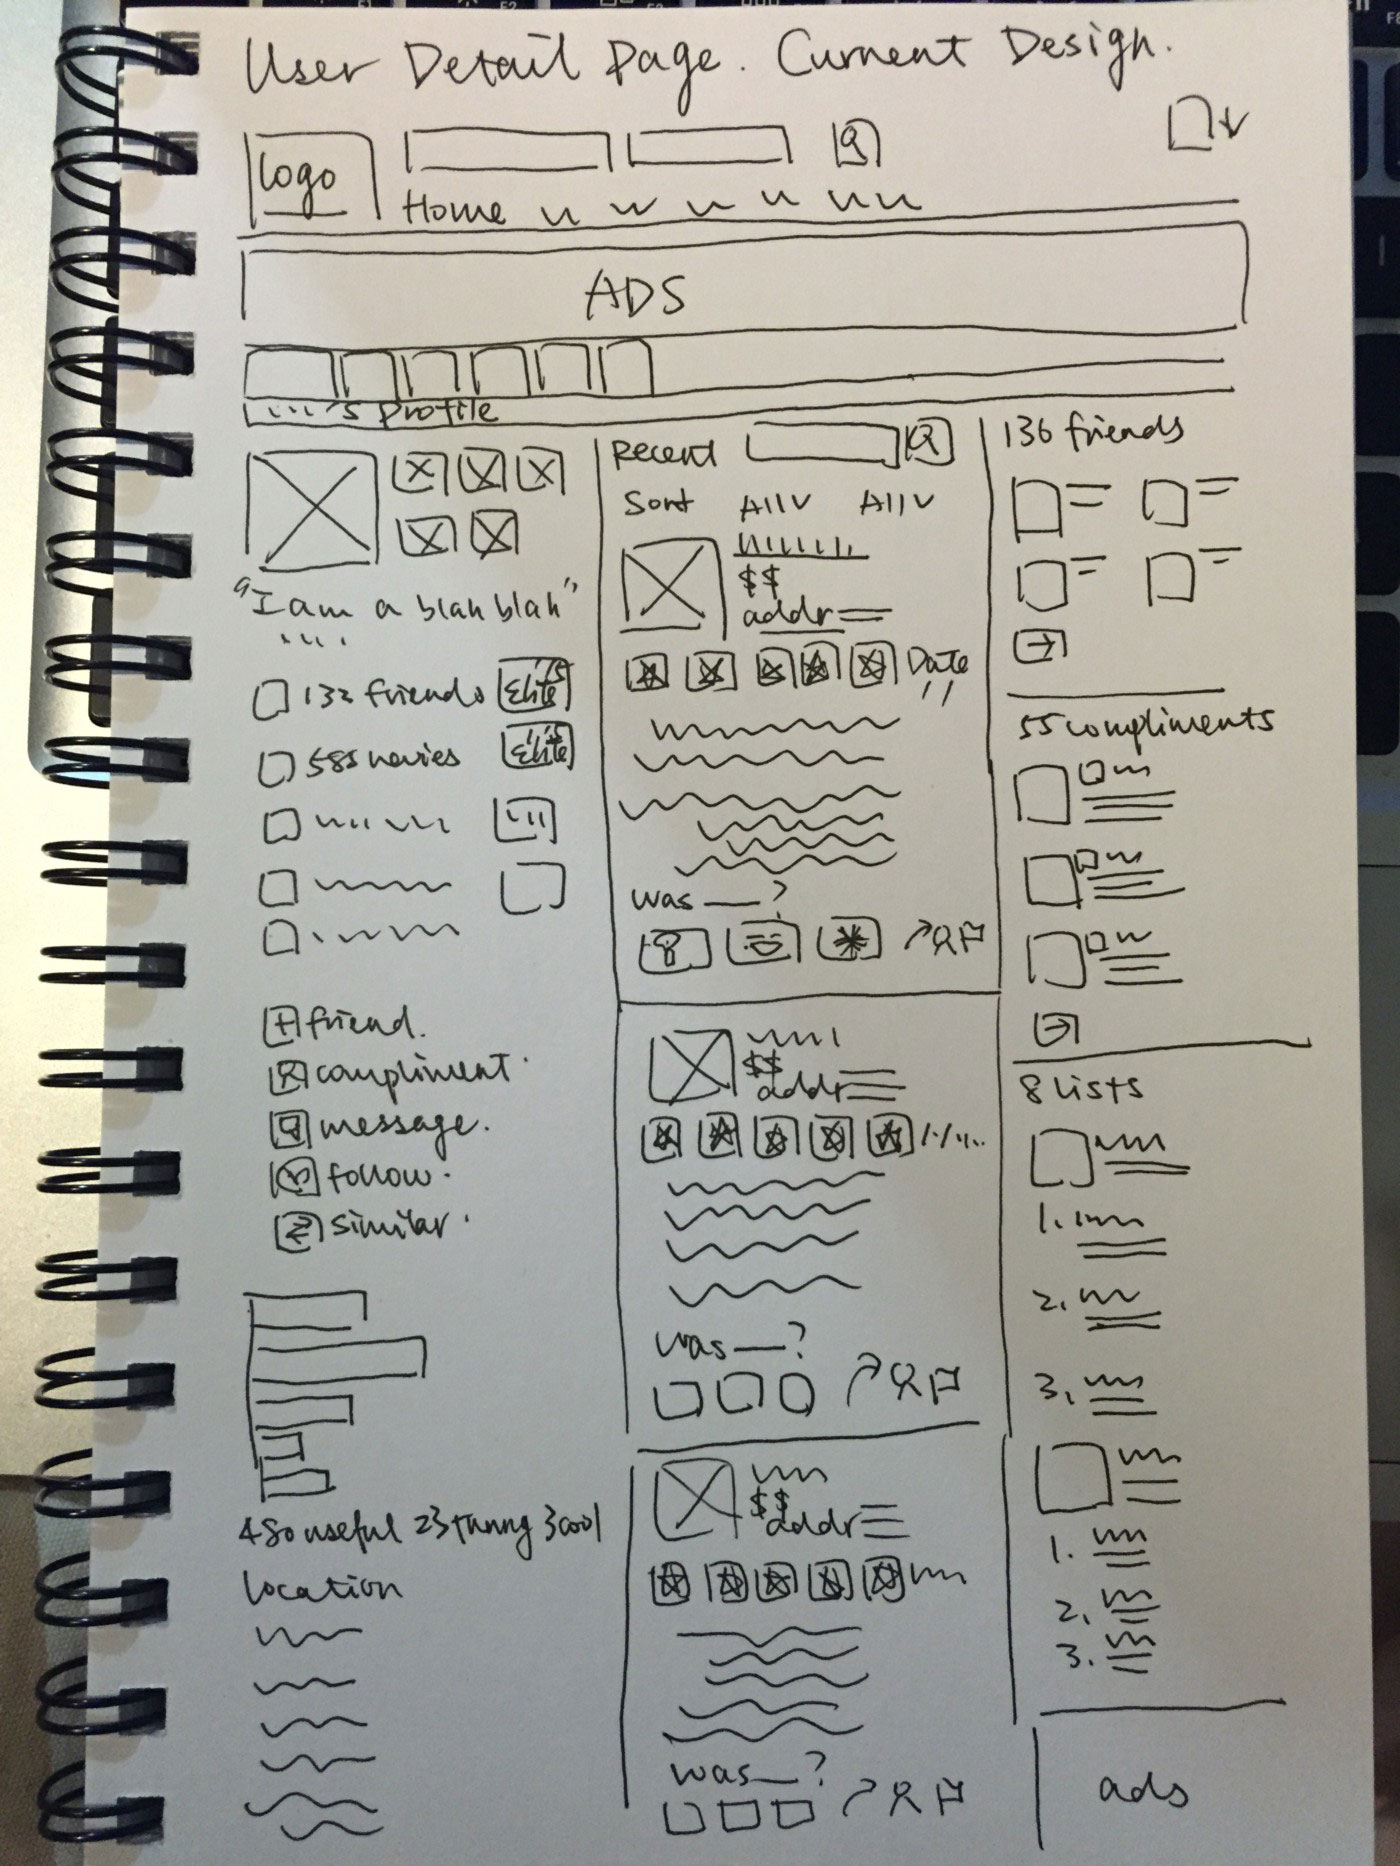 User Detail Page. Current Design.
Logo
Home
ADS
....'s profile
"I am a blah blah"
....
132 friends
Elite '15
Elite '15
friend.
compliment.
message.
follow.
similar.
480 useful 23 funny 3 cool
location
Recent
Sort All v All v
$$
addr
Date
was __ ?
$$
addr
was __ ?
$$
addr
was __ ?
136 friends
55 compliments
8 lists
1.
2.
3.
1.
2.
3.
ads